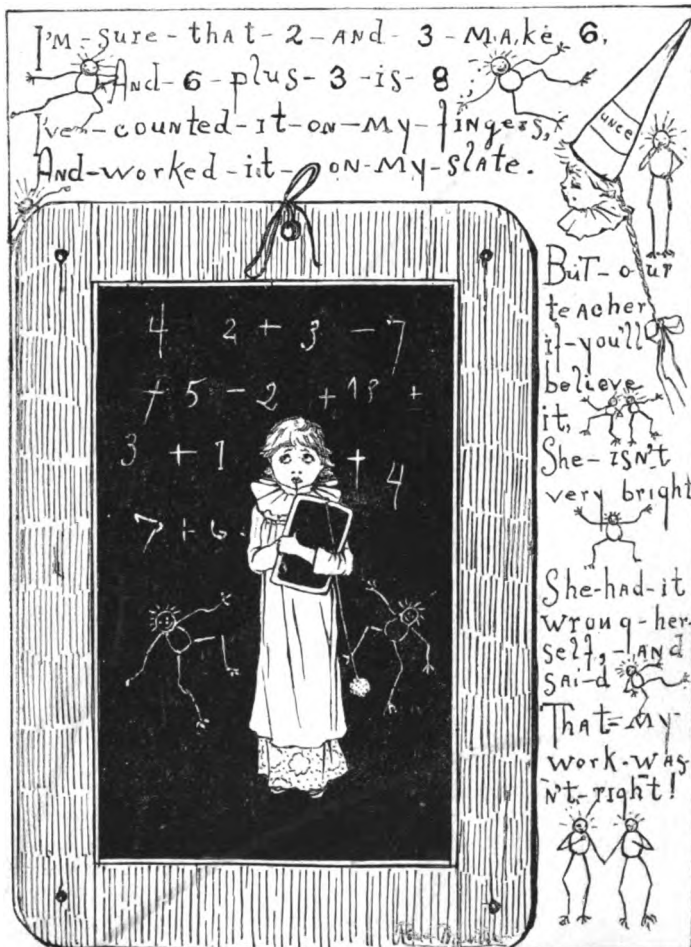 I'm-sure-that-2-and-3-make 6,
And-6-plus-3-is-8;
I've-counted-it-on-my-fingers,
And-worked-it-on-my-slate.
unce
But-our
teacher
if-you'll
believe
it,
She-isn't
very bright
She-had-it
wrong-her-
self,-and
sai-d
That-my-
work-was
n't-right!
4 2 + 3 - 7
+ 5 - 2 + 13 +
3 + 1 + 4
7 + 6